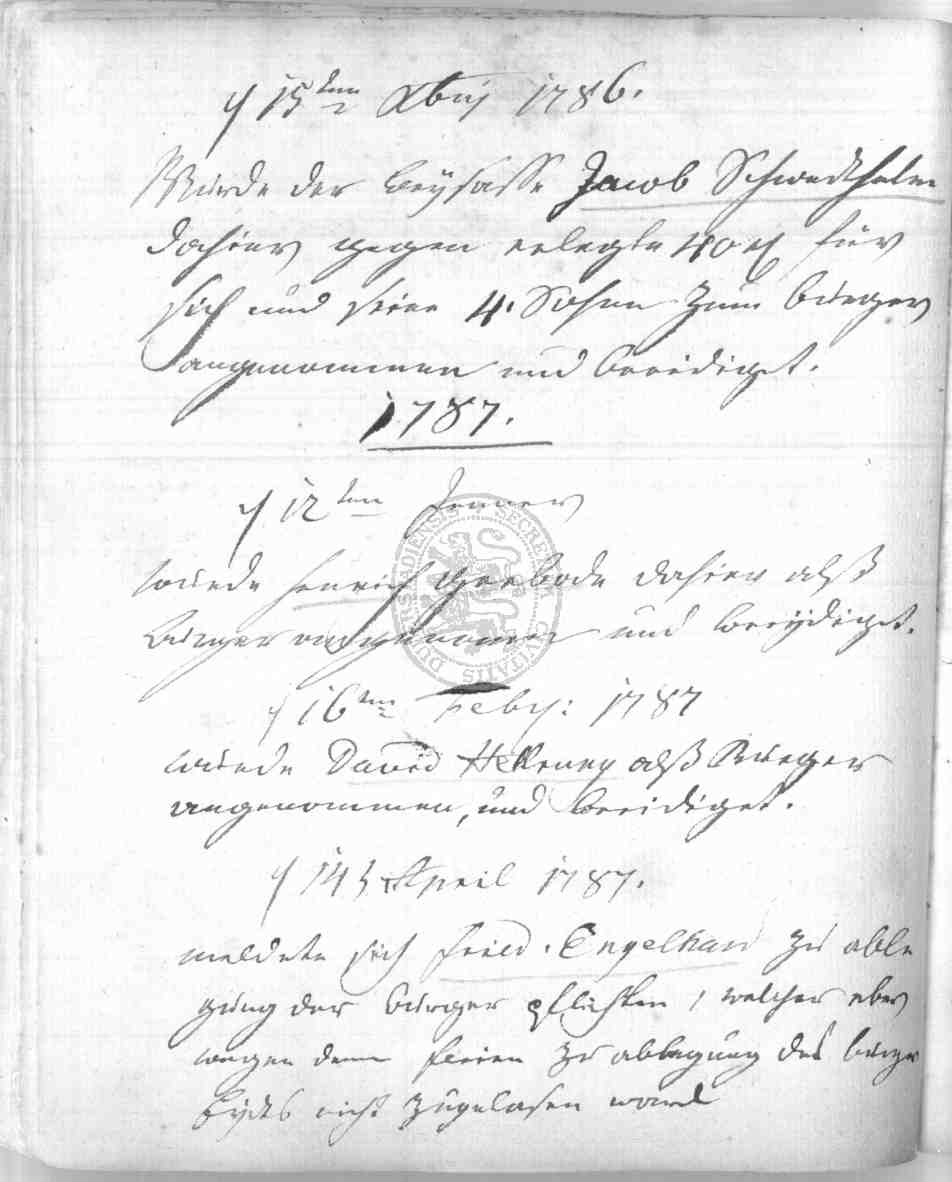 d 15ten Xbris 1786.
Wurde der beysasse Jacob Schwerthalm
dahier gegen erlegte 40 für
sich und seine 4. Sohne zum burger
angenommen und beeidiget.
1787.
d 12ten Jenner
wurde Henrich dahier alß
Burger angenommen und beeydiget.
d 16ten Febr: 1787
wurde David alß Burger
angenommen, und beeidiget.
d 14t April 1787.
meldete sich Fried. Engelhard zu able
gung der burger pflichten, welcher aber
wegen denen ferien zu ablegung des burger
Eydes nicht zugelasen word
SECRETUM CIVITATIS